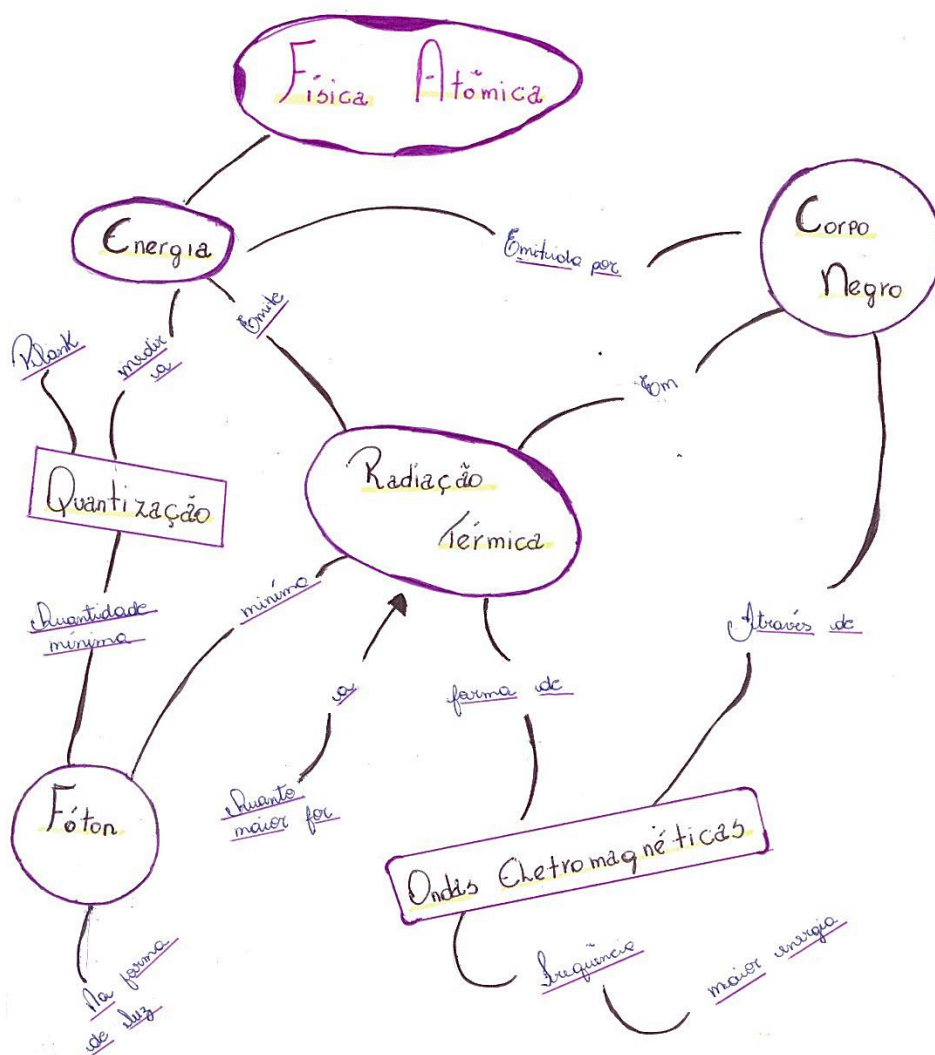 Física Atômica
Energia
Emitida por
Corpo
Negro
Plank
medir
a
Emite
Em
Quantização
Radiação
Térmica
Quantidade
mínima
mínima
Através de
a
forma de
Fóton
Quanto
maior for
Ondas Eletromagnéticas
Na forma
de luz
Freqüência
maior energia